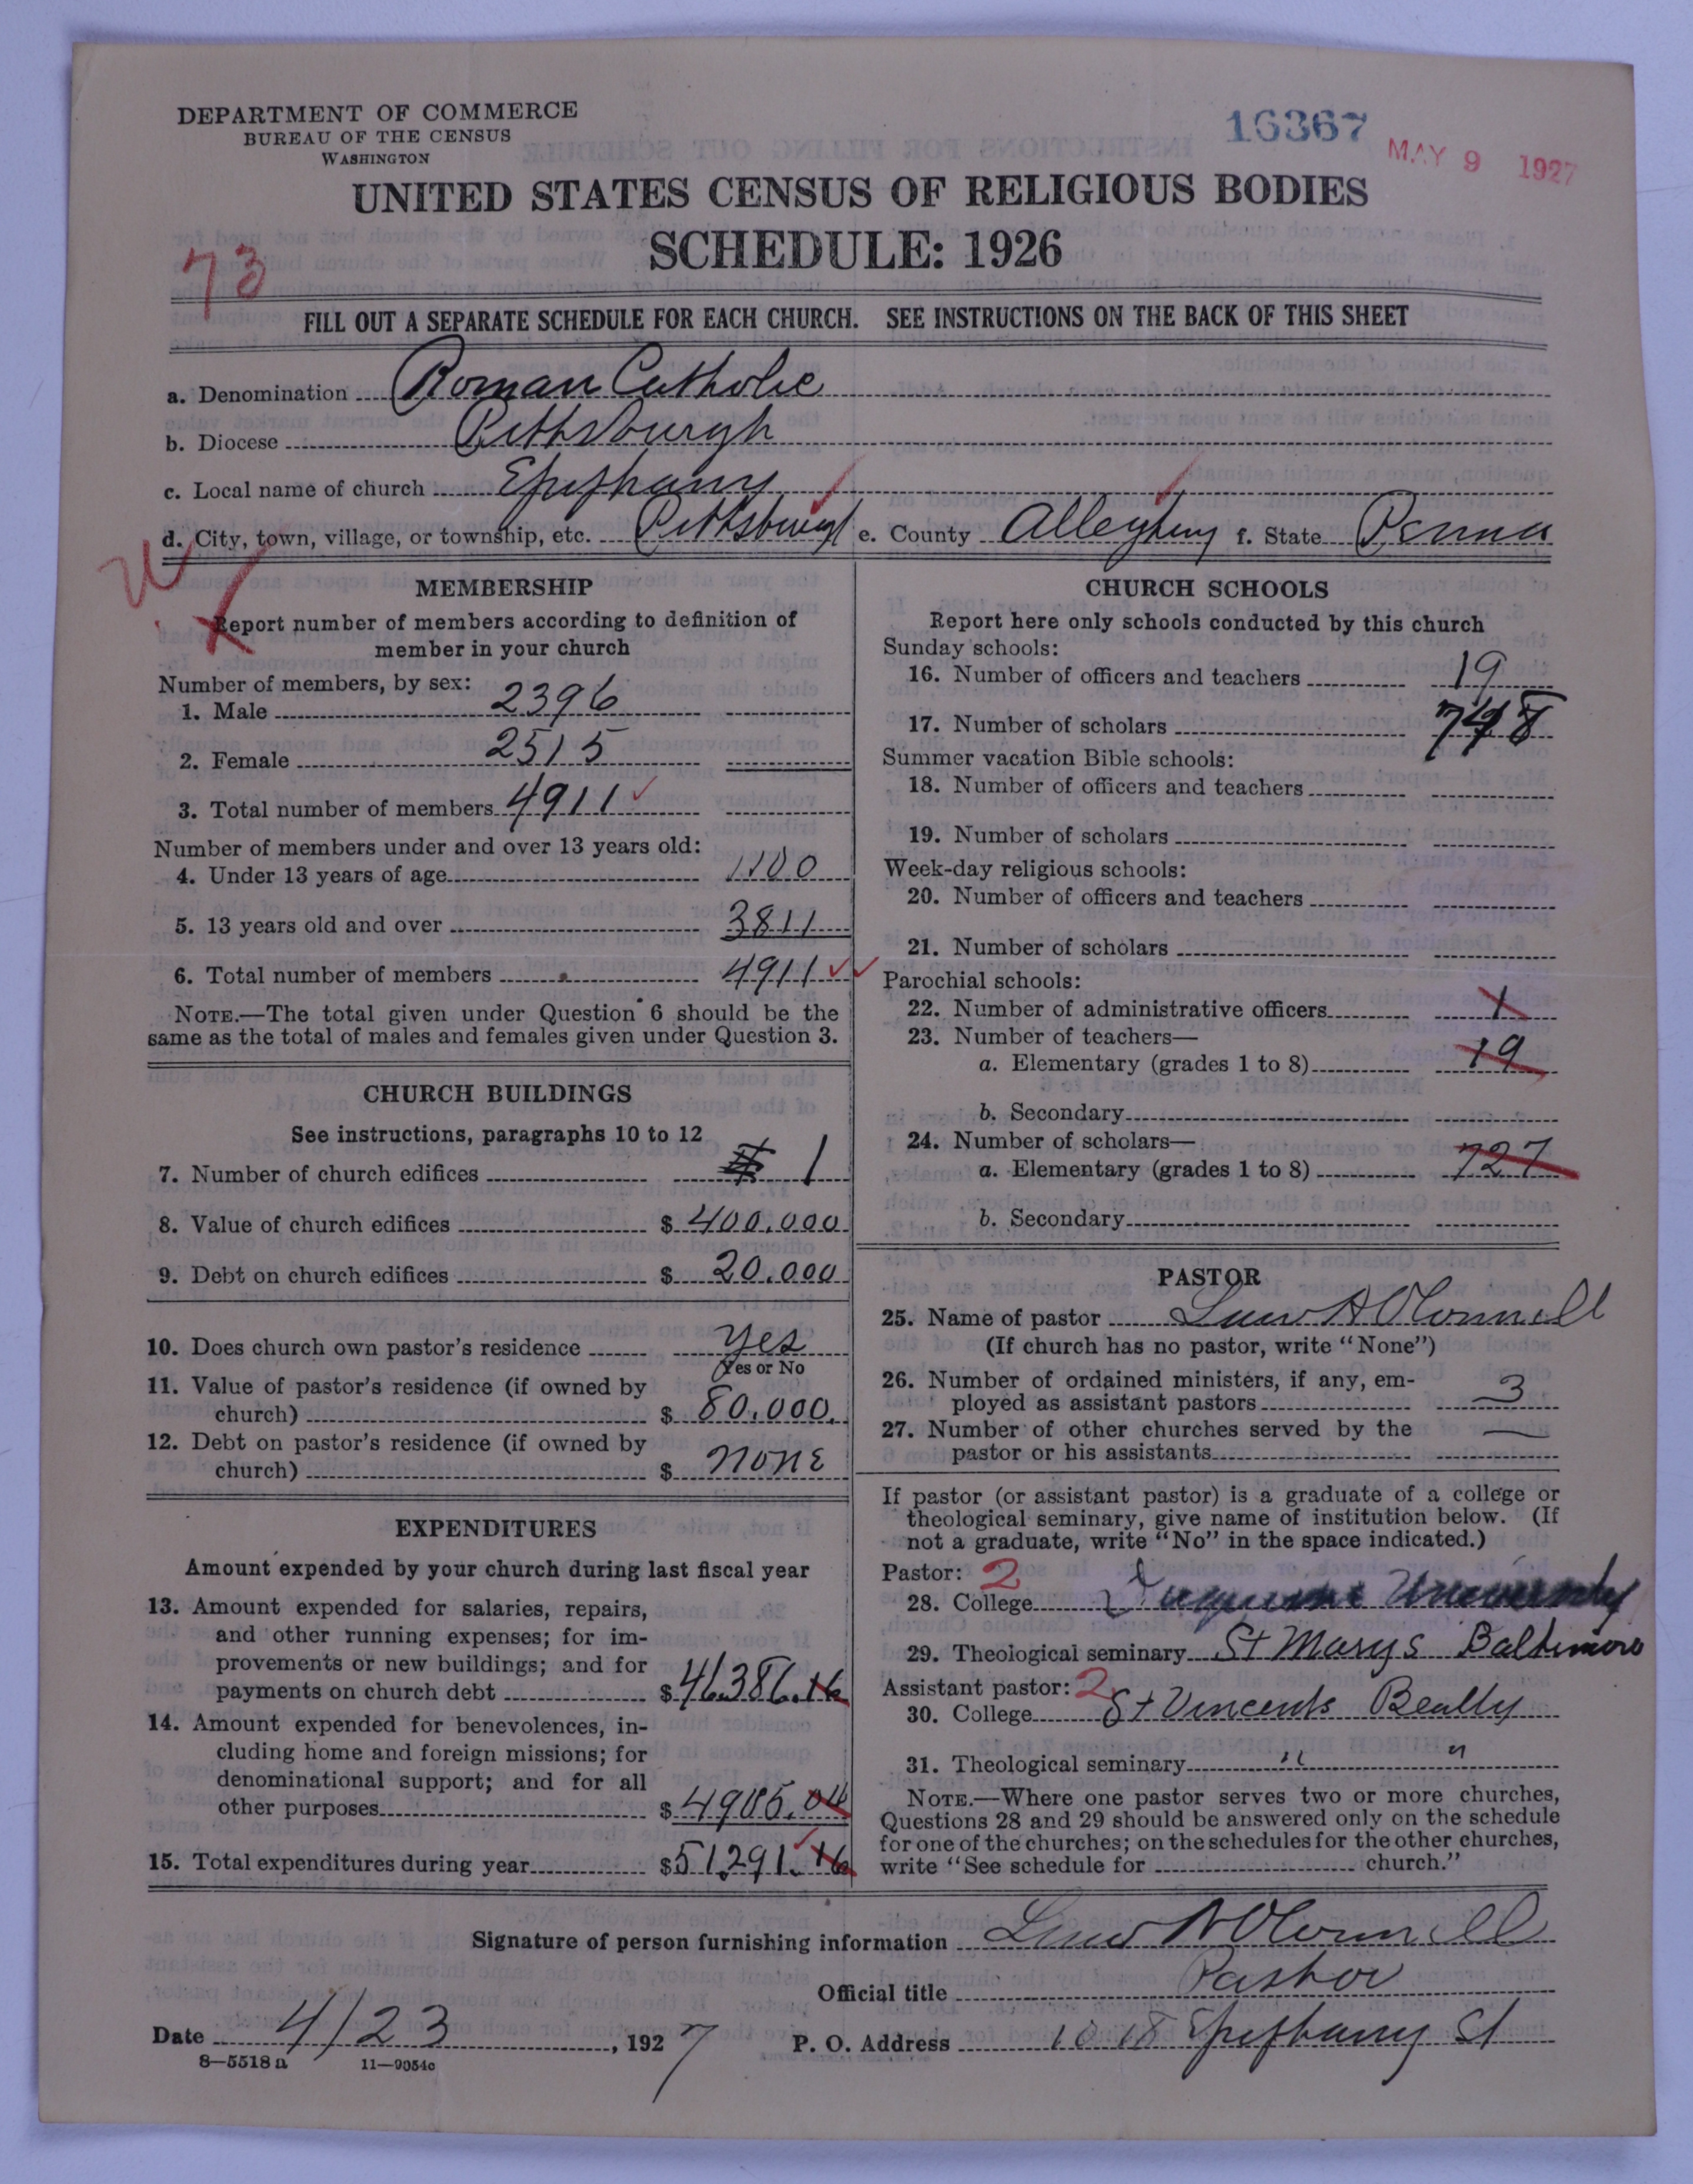 DEPARTMENT OF COMMERCE
BUREAU OF THE CENSUS
WASHINGTON
16367
MAY 9 1927
UNITED STATES CENSUS OF RELIGIOUS BODIES
SCHEDULE: 1926
73
FILL OUT A SEPARATE SCHEDULE FOR EACH CHURCH. SEE INSTRUCTIONS ON THE BACK OF THIS SHEET
a. Denomination Roman Catholic
b. Diocese Pittsburgh
c. Local name of church Epiphany
d. City, town, village, or township, etc. Pittsburgh e. County Allegheny f. State Penna
MEMBERSHIP
Report number of members according to definition of
member in your church
Number of members, by sex:
1. Male 2396
2. Female 2515
3. Total number of members 4911
Number of members under and over 13 years old:
4. Under 13 years of age 1100
5. 13 years old and over 3811
6. Total number of members 4911
NOTE.—The total given under Question 6 should be the
same as the total of males and females given under Question 3.
CHURCH BUILDINGS
See instructions, paragraphs 10 to 12
7. Number of church edifices 1
8. Value of church edifices $ 400.000
9. Debt on church edifices $ 20.000
10. Does church own pastor's residence yes
Yes or No
11. Value of pastor's residence (if owned by
church) $ 80.000.
12. Debt on pastor's residence (if owned by
church) $ none
EXPENDITURES
Amount expended by your church during last fiscal year
13. Amount expended for salaries, repairs,
and other running expenses; for im-
provements or new buildings; and for
payments on church debt $ 46.386.16
14. Amount expended for benevolences, in-
cluding home and foreign missions; for
denominational support; and for all
other purposes $ 4905.04
15. Total expenditures during year $ 51,291.16
CHURCH SCHOOLS
Report here only schools conducted by this church
Sunday schools:
16. Number of officers and teachers 19
17. Number of scholars 748
Summer vacation Bible schools:
18. Number of officers and teachers
19. Number of scholars
Week-day religious schools:
20. Number of officers and teachers
21. Number of scholars
Parochial schools:
22. Number of administrative officers 1
23. Number of teachers—
a. Elementary (grades 1 to 8) 19
b. Secondary
24. Number of scholars—
a. Elementary (grades 1 to 8) 727
b. Secondary
PASTOR
25. Name of pastor Law A O'Connell
(If church has no pastor, write "None")
26. Number of ordained ministers, if any, em-
ployed as assistant pastors 3
27. Number of other churches served by the
pastor or his assistants —
If pastor (or assistant pastor) is a graduate of a college or
theological seminary, give name of institution below. (If
not a graduate, write "No" in the space indicated.)
Pastor: 2
28. College Duquesne University
29. Theological seminary St Marys Baltimore
Assistant pastor: 2
30. College St Vincents Beatty
31. Theological seminary " "
NOTE.—Where one pastor serves two or more churches,
Questions 28 and 29 should be answered only on the schedule
for one of the churches; on the schedules for the other churches,
write "See schedule for church."
Signature of person furnishing information Law A O'Connell
Official title Pastor
Date 4/23, 1927 P. O. Address 1018 Epiphany St
8—5518 a 11—9054c